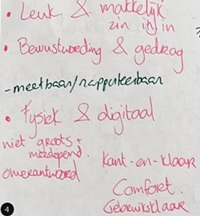 • Leuk & makkelijk
zin in in
• Bewustwording & gedrag
- meetbaar/rapporteerbaar
• Fysiek & digitaal
niet groots +
meeslepend.
onverantwoord
kant-en-klaar
Comfort.
Gebruiksklaar
4